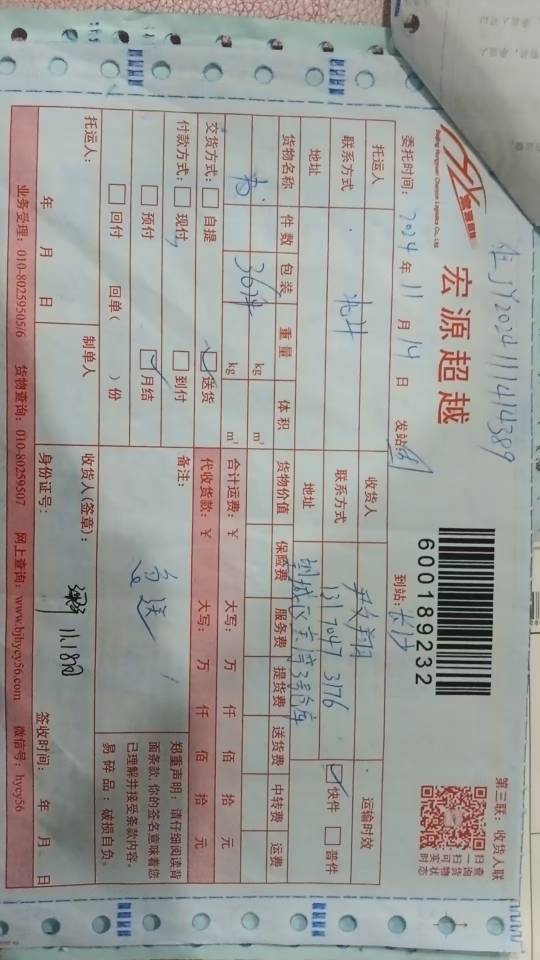 住JY2024111414389
宏源超越
Beijing Hongyuan Chaoyue Logistics Co., Ltd.
600189232
第三联：收货人联
扫一扫
查询货物
可实时状态
委托时间：2024年11月14日 发站： 到站：长沙
托运人 收货人 运输时效
联系方式 北京 联系方式 131 7047 3176 快件 普件
地址 地址
货物名称 件数 包装 重量 体积 货物价值 保险费 服务费 提货费 送货费 中转费 运费
36件 kg m³
kg m³ 合计运费：¥ 大写： 万 仟 佰 拾 元
交货方式： 自提 送货 代收货款：¥ 大写： 万 仟 佰 拾 元
付款方式： 现付 到付 备注：
预付 月结
回付 回单( )份
郑重声明：请仔细阅读背
面条款,你的签名意味着您
已理解并接受条款内容。
易碎品：破损自负。
托运人： 制单人 收货人(签章)：
11.18
年 月 日 身份证号： 签收时间： 年 月 日
业务受理：010-80259505/6 货物查询：010-80259507 网上查询：www.bjhycy56.com 微信号：hycy56